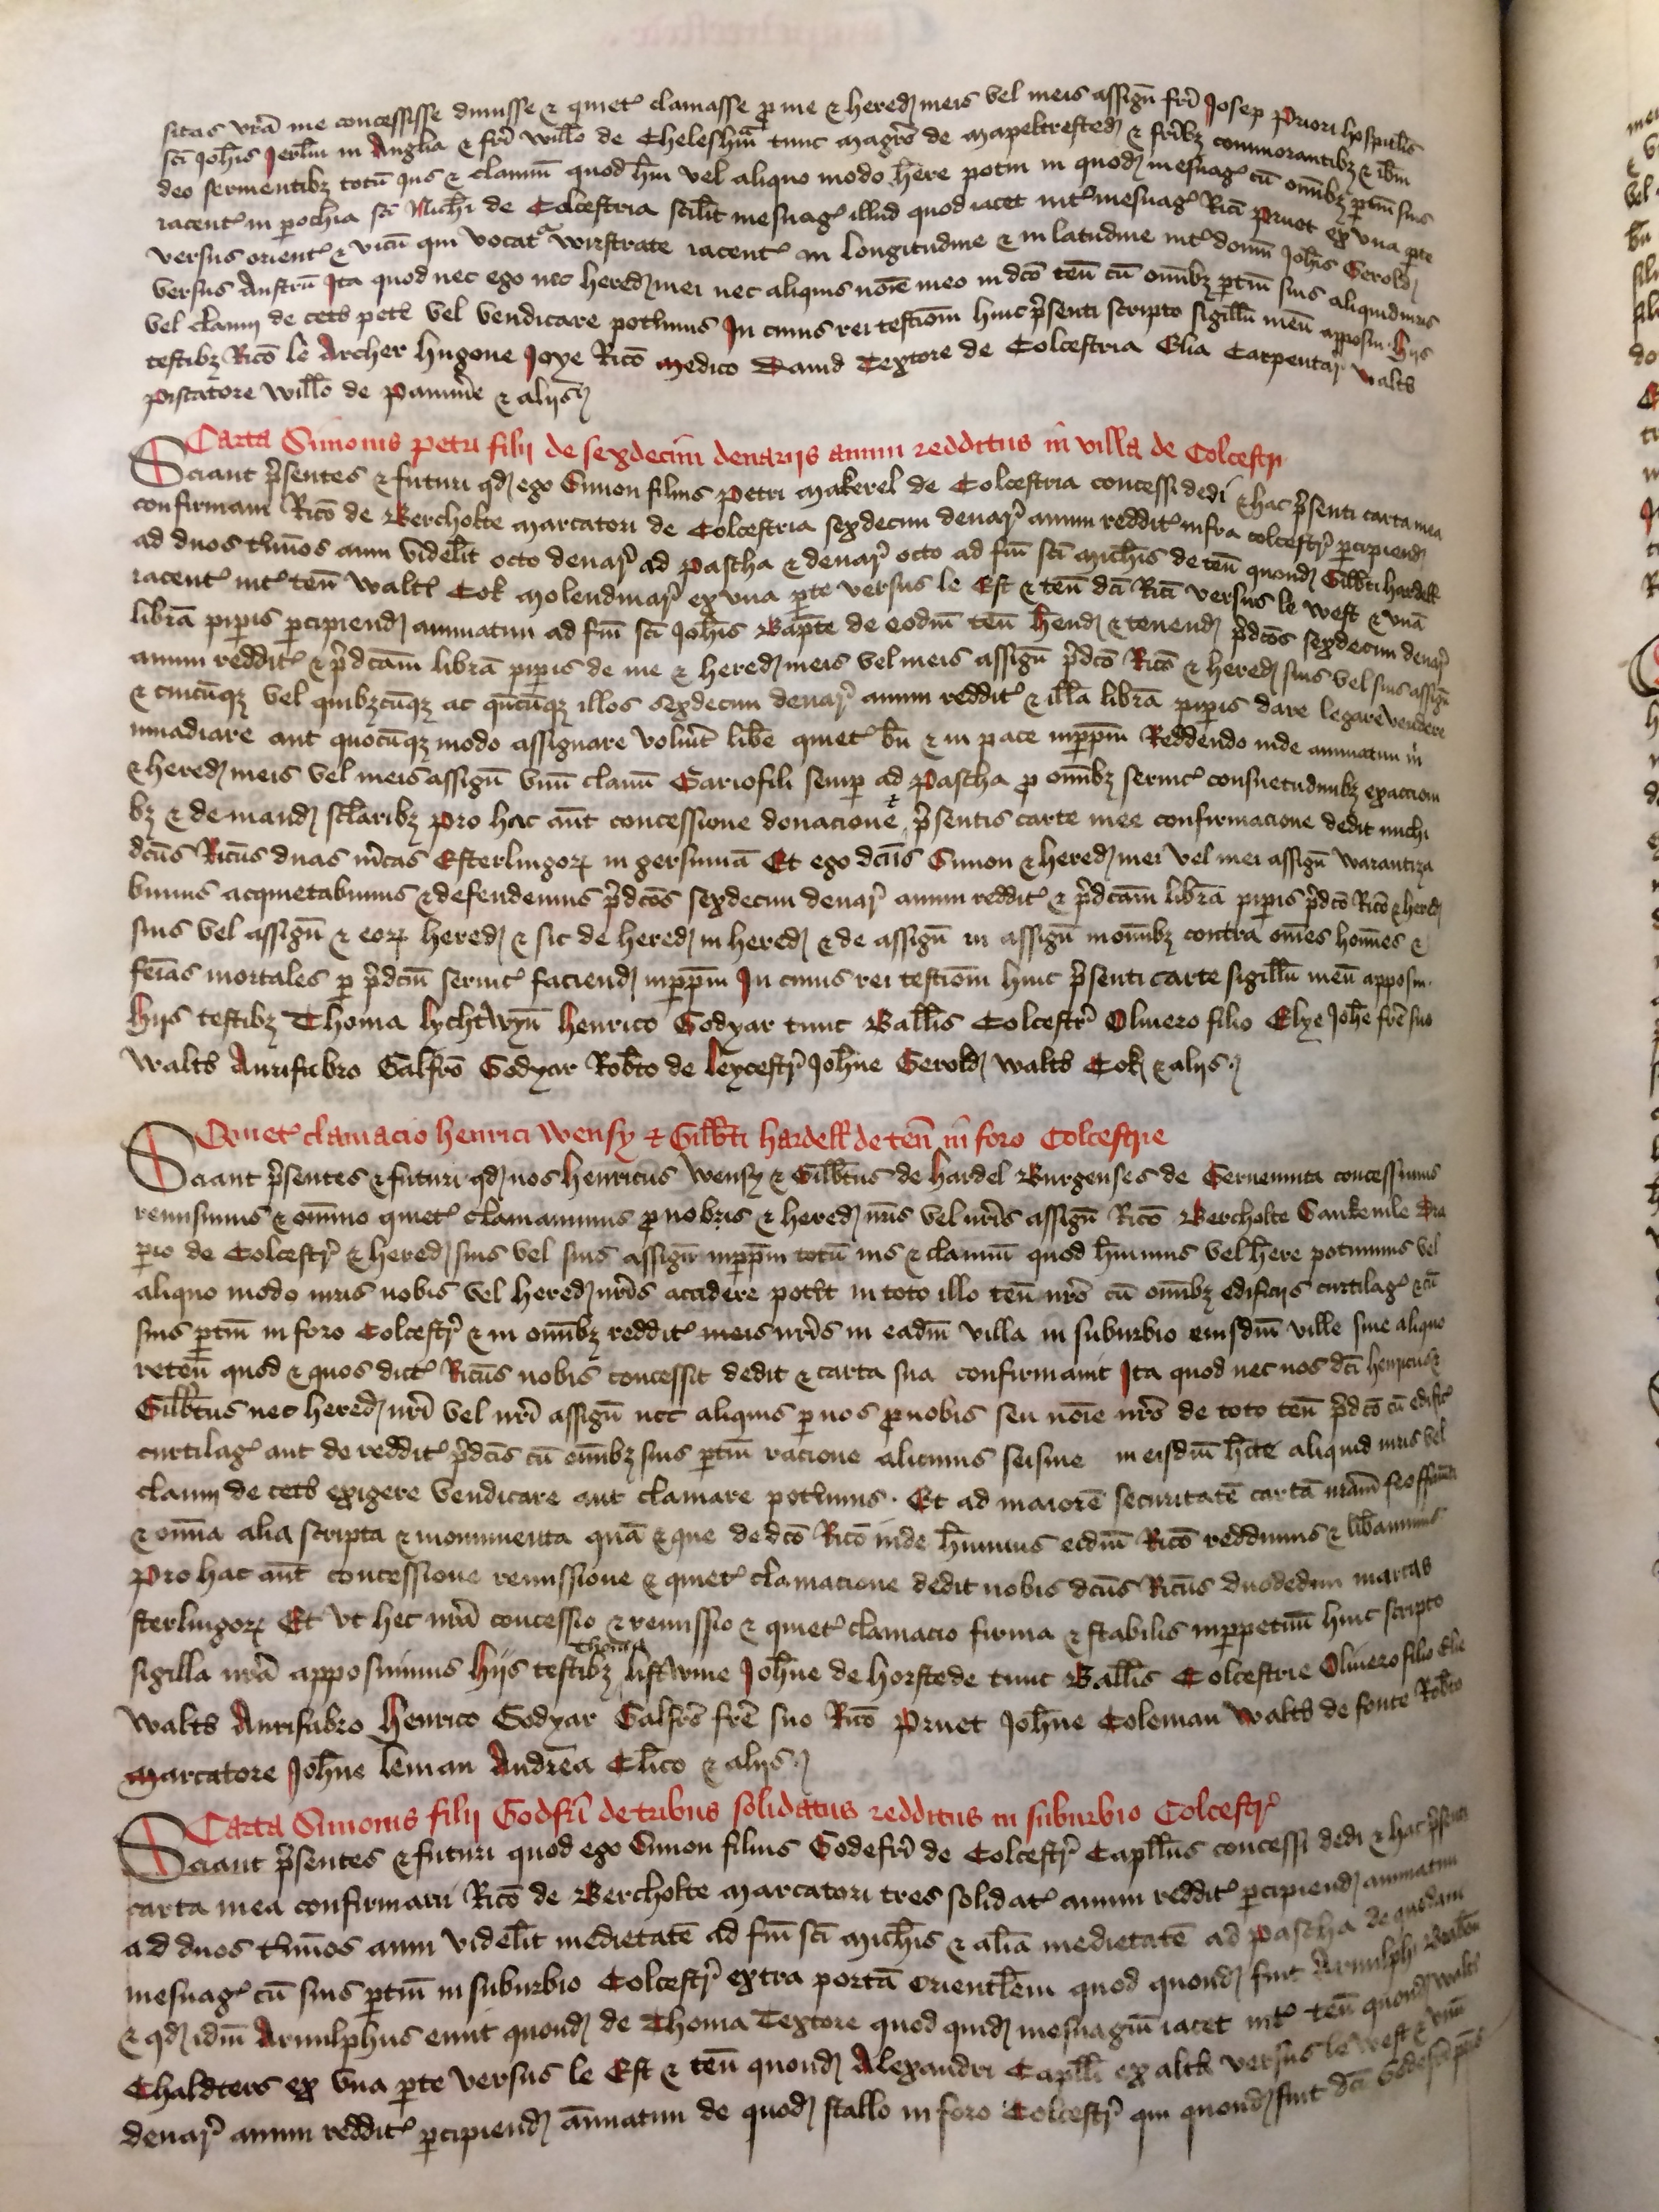 sitas vrā me concessisse dimisse & quiet' clamasse p me & hered meis vel meis assigū fr̄i Josep Priori hospitlis
sc̄i Joh̄is Jerlm̄ in Anglia & fr̄i Willo de Chelesh̄m tunc magr̄o de Mapeltrested & fr̄ibȝ commorantibȝ & ibm̄
deo seruientibȝ totū jus & clamiū quod h̄ui vel aliquo modo h̄ere potui in quod mesuag' cū omībȝ ptin̄ suis
iacent' in pochia sc̄i Nich̄i de Colcestria scilit mesuag' illud quod iacet int' mesuag' Rici Pruet ex vna pte
versus orient' & vicū qui vocat' Wirstrate iacent' in longitudine & in latudine int' domū Joh̄is Gerold
versus Austrū Ita quod nec ego nec hered mei nec aliquis noīe meo in dc̄o ten̄ cū omībȝ ptin̄ suis aliquid iuris
vel clamij de cet'o pet'e vel vendicare pot'imus In cuius rei testiom̄ huic p̄senti scripto sigillū meū apposui hijs
testibȝ Ric̄o le Archer hugone Joye Ric̄o Medico Dauid Textore de Colcestria Elia Carpentar' Walt'o
Piscatore Willo de Panmēe & alijs
Carta Simonis petri filij de sexdecim denarijs annui redditus in villa de Colcestr'
Sciant p̄sentes & futuri qd ego Simon filius Petri Makerel de Colcestria concessi dedi & hac p̄senti carta mea
confirmaui Ric̄o de Bercholte Marcatori de Colcestria sexdecim denar' annui reddit' infra colcestr' pcipiend
ad duos t'mīos anni videlit octo denar' ad Pascha & denar' octo ad fm̄ sc̄i Mich̄is de ten̄ quond Gilb̄ti hardell
iacent' int' ten̄ Walt'i Cok Molendinar' ex vna pte versus le Est & ten̄ dc̄i Rici versus le West & vnā
librā pipis pcipiend annuatim ad fm̄ sc̄i Joh̄is Bap̄te de eodm̄ ten̄ h̄end & tenend p̄dc̄os sexdecim denar'
annui reddit' & p̄dcām librā pipis de me & hered meis vel meis assigū p̄dc̄o Ric̄o & hered suis vel suis assigū
& cuicūqȝ vel quibȝcūqȝ ac qn̄cūqȝ illos sexdecim denar' annui reddit' & illā librā pipis dare legare vendere
inuadiare aut quocūqȝ modo assignare voluīt libē quiet' bn̄ & in pace inppm̄ Reddendo inde annuatim m̄
& hered meis vel meis assigū vnū clauū Gariofili semp ad Pascha p omībȝ seruic' consuetudinibȝ exaccioni
bȝ & demand sc̄laribȝ Pro hac aūt concessione donacione & p̄sentis carte mee confirmacione dedit michi
dc̄us Ricūs duas m̄cas Esterlingoꝝ in gersumā Et ego dc̄us Simon & hered mei vel mei assigū warantiza
bimus acquietabimus & defendemus p̄dc̄os sexdecim denar' annui reddit' & p̄dcām librā pipis p̄dc̄o Ric̄o & hered
suis vel assigū & eoꝝ hered & sic de hered in hered & de assigū in assigū in omībȝ contra om̄es hom̄es &
feīas mortales p p̄dc̄m seruic' faciend inppm̄ In cuius rei testiom̄ huic p̄senti carte sigillū meū apposui
Hijs testibȝ Thoma lychtwyn̄ Henrico Godyar tunc Ballīs Colcestr' Oliuero filio Elye Joh̄e fr̄e suo
Walt'o Aurifabro Galfr̄o Godyar Rob̄to de Leycestr' Joh̄ne Gerold Walt'o Cok & alijs
Quiet' clamacio henrici Wensy & Gilb̄ti hardell de ten̄ in foro Colcestrie
Sciant p̄sentes & futuri qd nos Henricus Wensy & Gilb̄tus de Hardel Burgenses de Gernemuta concessimus
remisimus & omīno quiet' clamauimus p nobis & hered nr̄is vel nr̄is assigū Ric̄o Bercholte Sankeuile Dra
pio de Colcestr' & hered suis vel suis assigū inppm̄ totū ius & clamiū quod h̄uimus vel h̄ere potuimus vel
aliquo modo iuris nobis vel hered nr̄is accidere pot'it in toto illo ten̄ nr̄o cū omībȝ edificijs curtilag' & cū
suis ptin̄ in foro Colcestr' & in omībȝ reddit' meis nr̄is in eadm̄ villa in suburbio eiusdm̄ ville sine aliquo
reten̄ quod & quos dict' Ricūs nobis concessit dedit & carta sua confirmauit Ita quod nec nos dc̄i henricus &
Gilb̄tus nec hered nr̄i vel nr̄i assigū nec aliquis p nos p nobis seu noīe nr̄o de toto ten̄ p̄dc̄o cū edific'
curtilag' aut de reddit' p̄dc̄is cū omībȝ suis ptin̄ racione alicuius seisine in eisdm̄ h̄ite aliquid iuris vel
clamij de cet'o exigere vendicare aut clamare pot'imus. Et ad maiorē securitatē cartā nrām feoffamēti
& omīa alia scripta & monimenta quā & que de dc̄o Ric̄o inde h̄uimus eidm̄ Ric̄o reddimus & lib̄auimus
Pro hac aūt concessione remissione & quiet' clamacione dedit nobis dc̄us Ricūs duodecim marcas
sterlingoꝝ Et vt hec nrā concessio & remissio & quiet' clamacio firma & stabilis inppetuū huic scripto
sigilla nrā apposuimus Hijs testibȝ Thoma listwine Joh̄ne de Horstede tunc Ballīs Colcestrie Oliuero filio Elie
Walt'o Aurifabro Henrico Godyar Galfr̄o fr̄e suo Ric̄o Pruet Joh̄ne Coleman Walt'o de fonte Rob̄to
Marcatore Joh̄ne Leman Andrea Cl̄ico & alijs
Carta Simonis filij Godfr̄i de tribus solidatus redditus in suburbio Colcestr'
Sciant p̄sentes & futuri quod ego Simon filius Godefr̄i de Colcestr' Capll̄us concessi dedi & hac p̄senti
carta mea confirmaui Ric̄o de Bercholte Marcatori tres solidat' annui reddit' pcipiend annuatim
ad duos t'mīos anni videlit medietatē ad fm̄ sc̄i Mich̄is & aliā medietatē ad Pascha de quodam
mesuag' cū suis ptin̄ in suburbio Colcestr' extra portā Orientlem quod quond fuit Arnulphi
& qd idm̄ Arnulphus emit quond de Thoma Textore quod quid mesuagiū iacet int' ten̄ quond Walt'i
Chaldters ex vna pte versus le Est & ten̄ quond Alexandri Capll̄i ex alt'a versus le West & vnū
denar' annui reddit' pcipiend ānuatim de quod stallo in foro Colcestr' qui quond fuit dc̄i